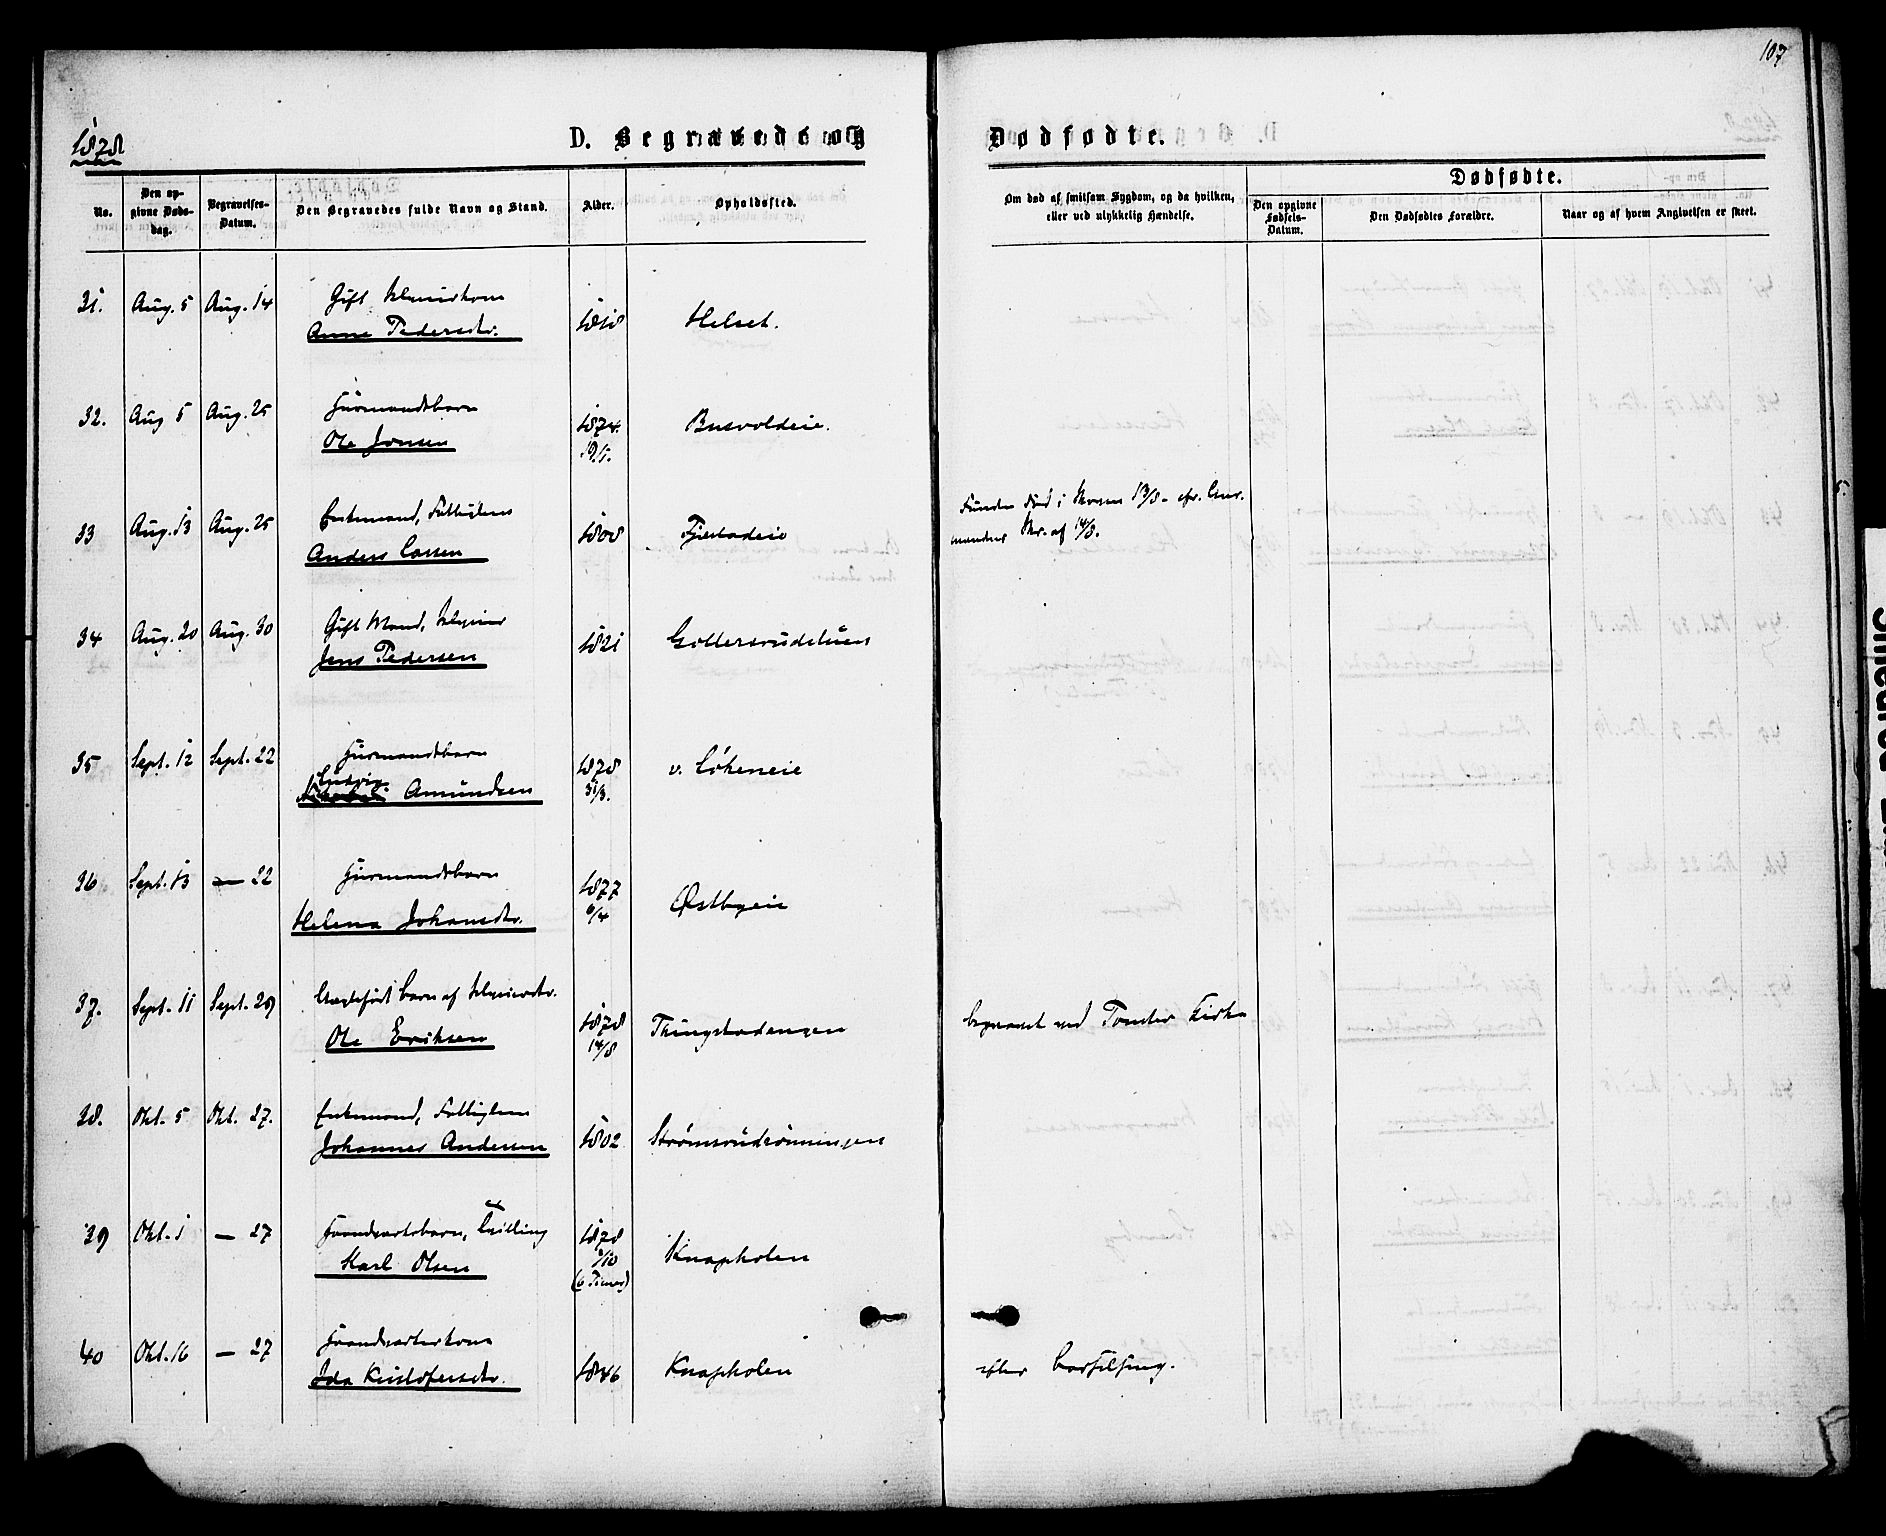 107
1878
D. Begravede og Dødfødte.
No.
Den opgivne Dødsdag.
Begravelses-Datum.
Den Begravedes fulde Navn og Stand.
Alder.
Opholdssted.
Om død af smitsom Sygdom, og da hvilken, eller ved ulykkelig Hændelse.
Dødfødte.
Den opgivne Fødsels-Datum.
Den Dødfødtes Forældre.
Naar og af hvem Angivelsen er skeet.
31. Aug. 5 Aug. 14 Gift
Anne Pedersdtr. 1818 Helset.
32. Aug 5 Aug. 25 Husmandsbarn
Ole Jonsen 1874 Busvoldeie.
19/1.
33 Aug. 13 Aug. 25 Enkemand, Fattiglem
Anders Larsen 1808 Fjestadeie
Funden død i 13/8
af 14/8.
34 Aug. 20 Aug. 30 Gift Mand,
Jens Pedersen 1821
35 Sept. 12 Sept. 22 Husmandsbarn
Ludvig
Amundsen 1878 v. Løkeneie
31/3.
36 Sept. 13 — 22 Husmandsbarn
Helena Johansdtr. 1877 Østbyeie
6/4
37. Sept. 11 Sept. 29 Uægtefødt Barn af
Ole Eriksen 1878 Thingstadengen
14/8
begravet ved Tomter Kirke
38. Okt. 5 Okt. 27. Enkemand, Fattiglem
Johannes Andersen 1802 Strømsrudrønningen
39 Okt. 1 — 27 Tvilling
Karl Olsen 1878 Knapholen
1/10
(6 Timer)
40 Okt. 16 — 27
Ida Kristofersdtr. 1846 Knapholen
efter Barselseng.